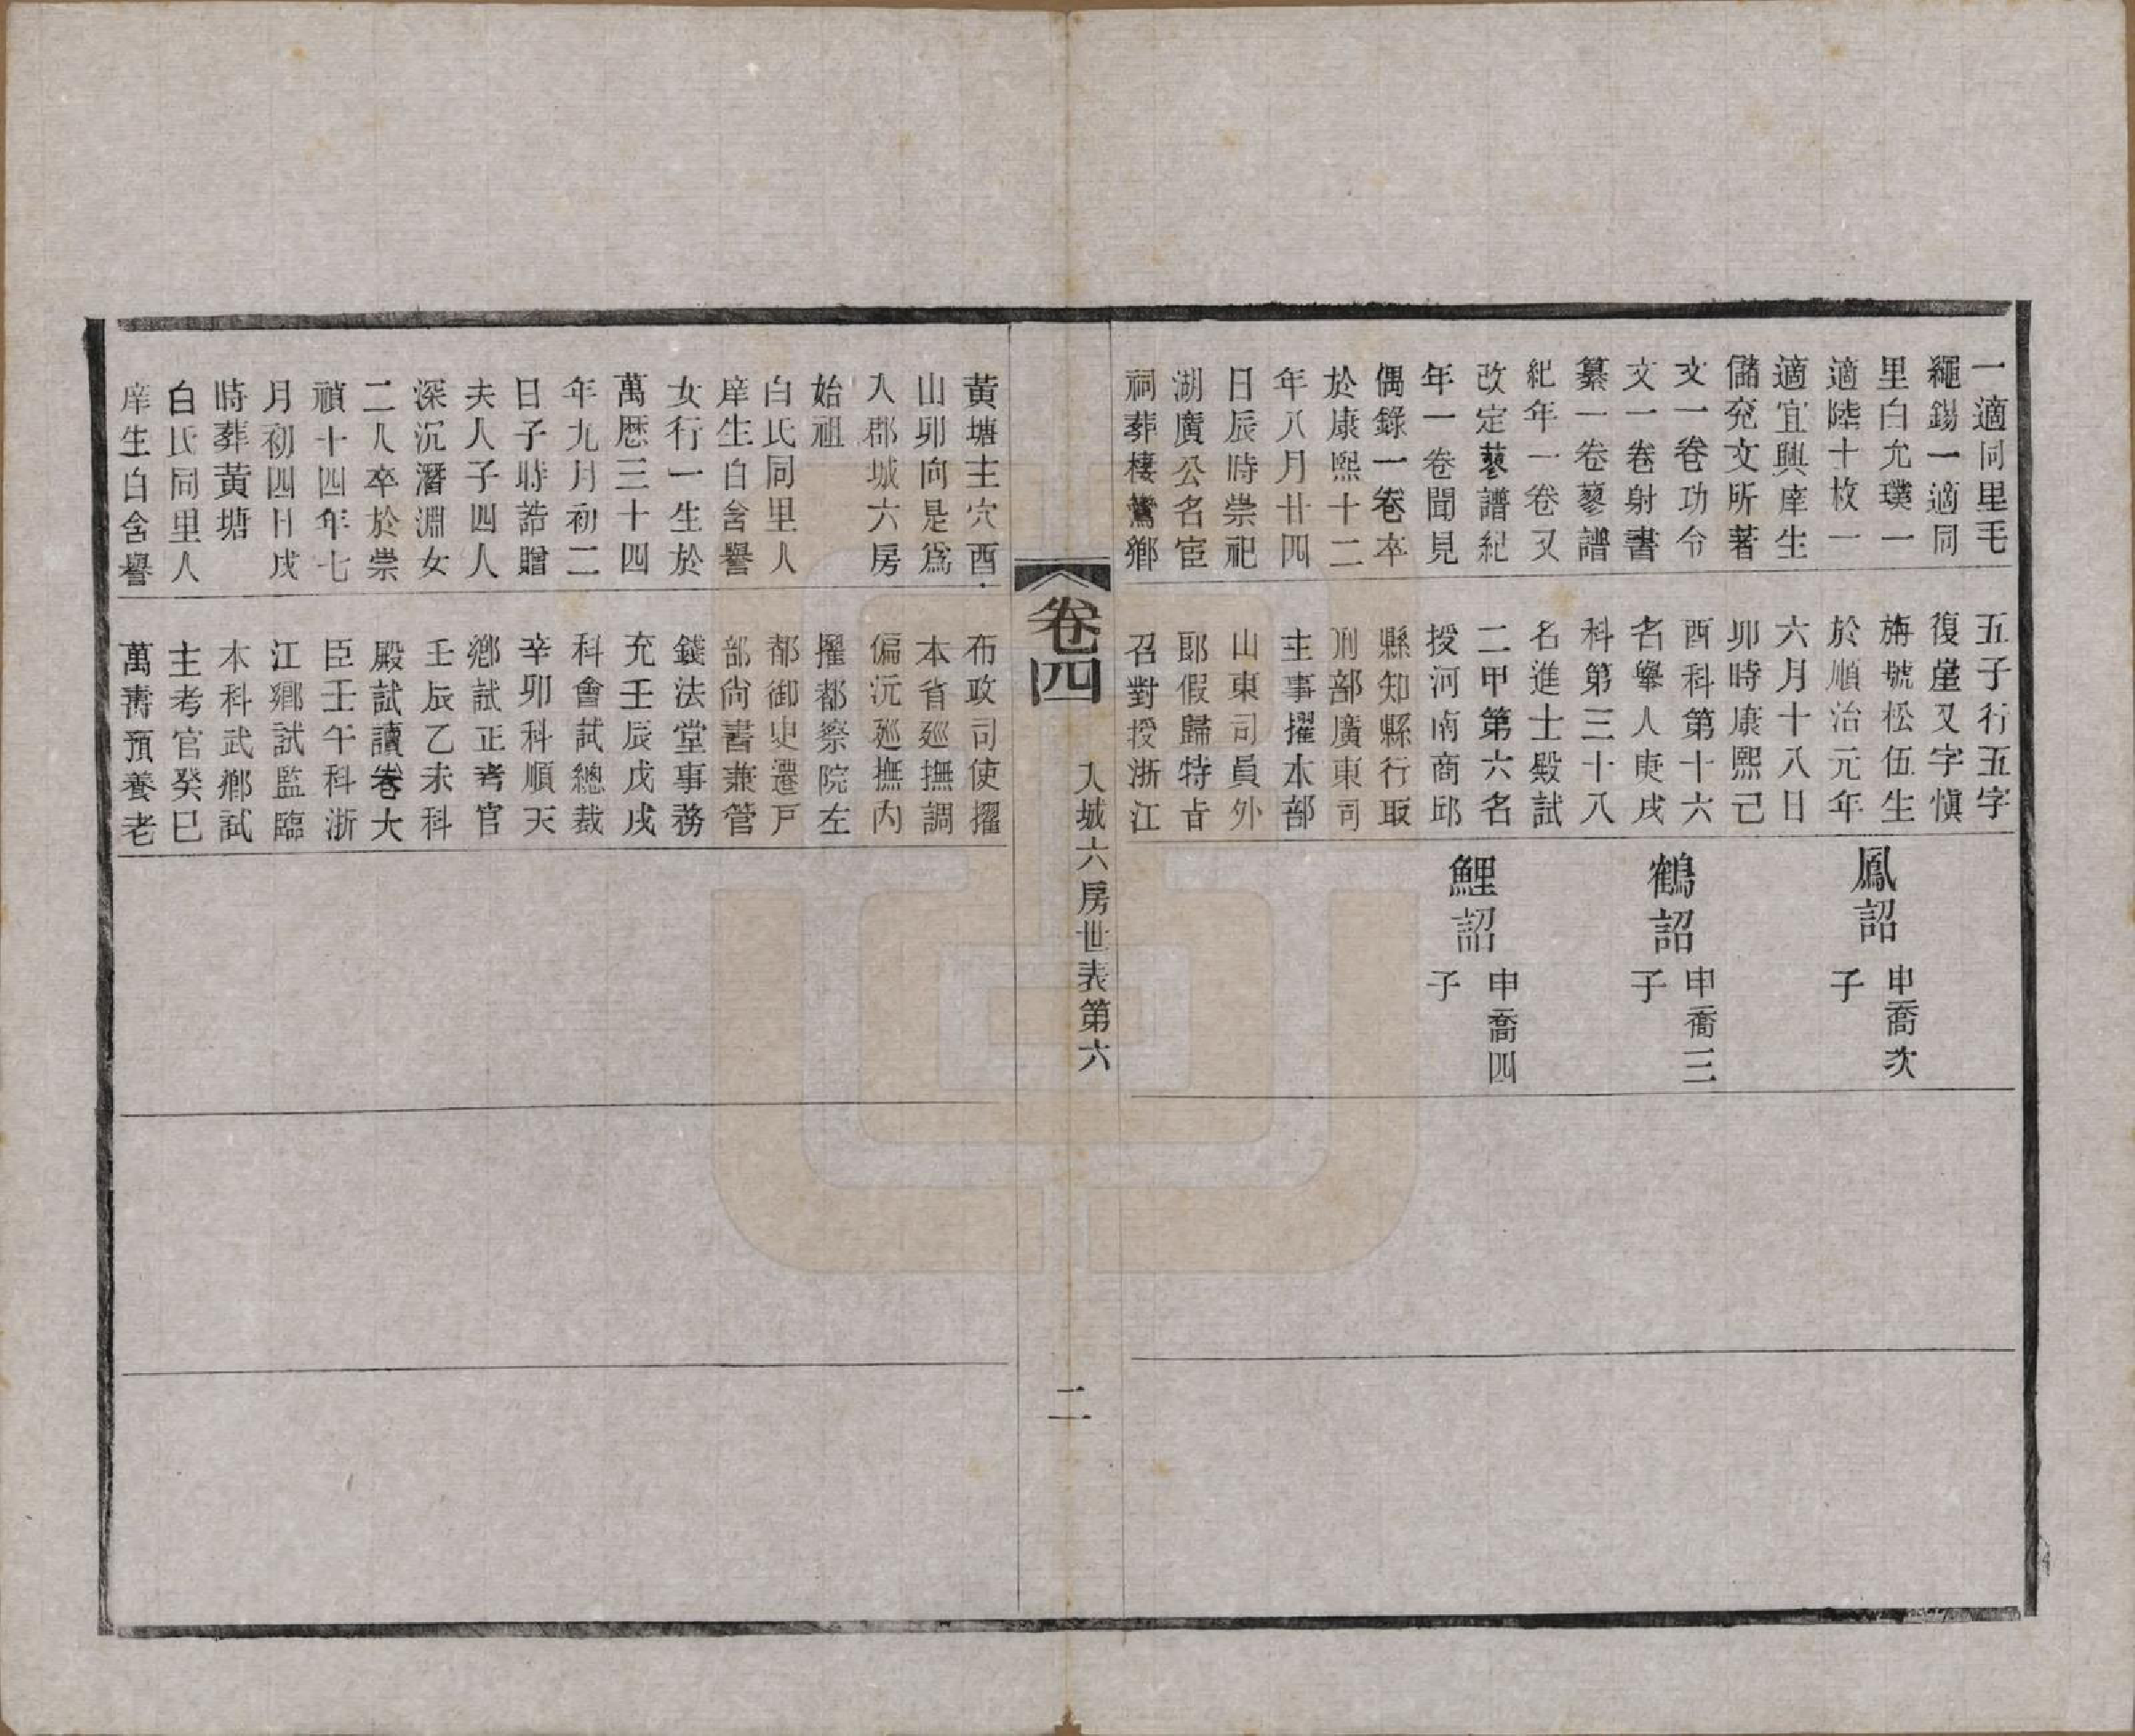 一適同里毛
繩錫一適同
里白允璞一
適陸十枚一
適宜興庠生
儲兗文所著
文一卷功令
文一卷射書
纂一卷蓼譜
紀年一卷又
改定蓼譜紀
年一卷聞見
偶錄一卷卒
於康熙十二
年八月廿四
日辰時崇祀
湖廣公名宦
祠葬棲鸞鄉
五子行五字
復堇又字慎
旃號松伍生
於順治元年
六月十八日
卯時康熙己
酉科第十六
名舉人庚戌
科第三十八
名進士殿試
二甲第六名
授河南商邱
縣知縣行取
刑部廣東司
主事擢本部
山東司員外
郎假歸特旨
召對授浙江
鳳詔
申喬次
子
鶴詔
申喬三
子
鯉詔
申喬四
子
卷四
大城六房世表第六
二
黃塘主穴酉
山卯向是為
入郡城六房
始祖
白氏同里人
庠生白含譽
女行一生於
萬歷三十四
年九月初二
日子時誥贈
夫人子四人
深沉潛淵女
二人卒於崇
禎十四年七
月初四日戌
時葬黃塘
白氏同里人
庠生白含譽
布政司使擢
本省廵撫調
偏沅廵撫內
擢都察院左
都御史遷戸
部尚書兼管
錢法堂事務
充壬辰戊戌
科會試總裁
辛卯科順天
鄉試正考官
壬辰乙未科
殿試讀卷大
臣壬午科浙
江鄉試監臨
本科武鄉試
主考官癸巳
萬壽預養老